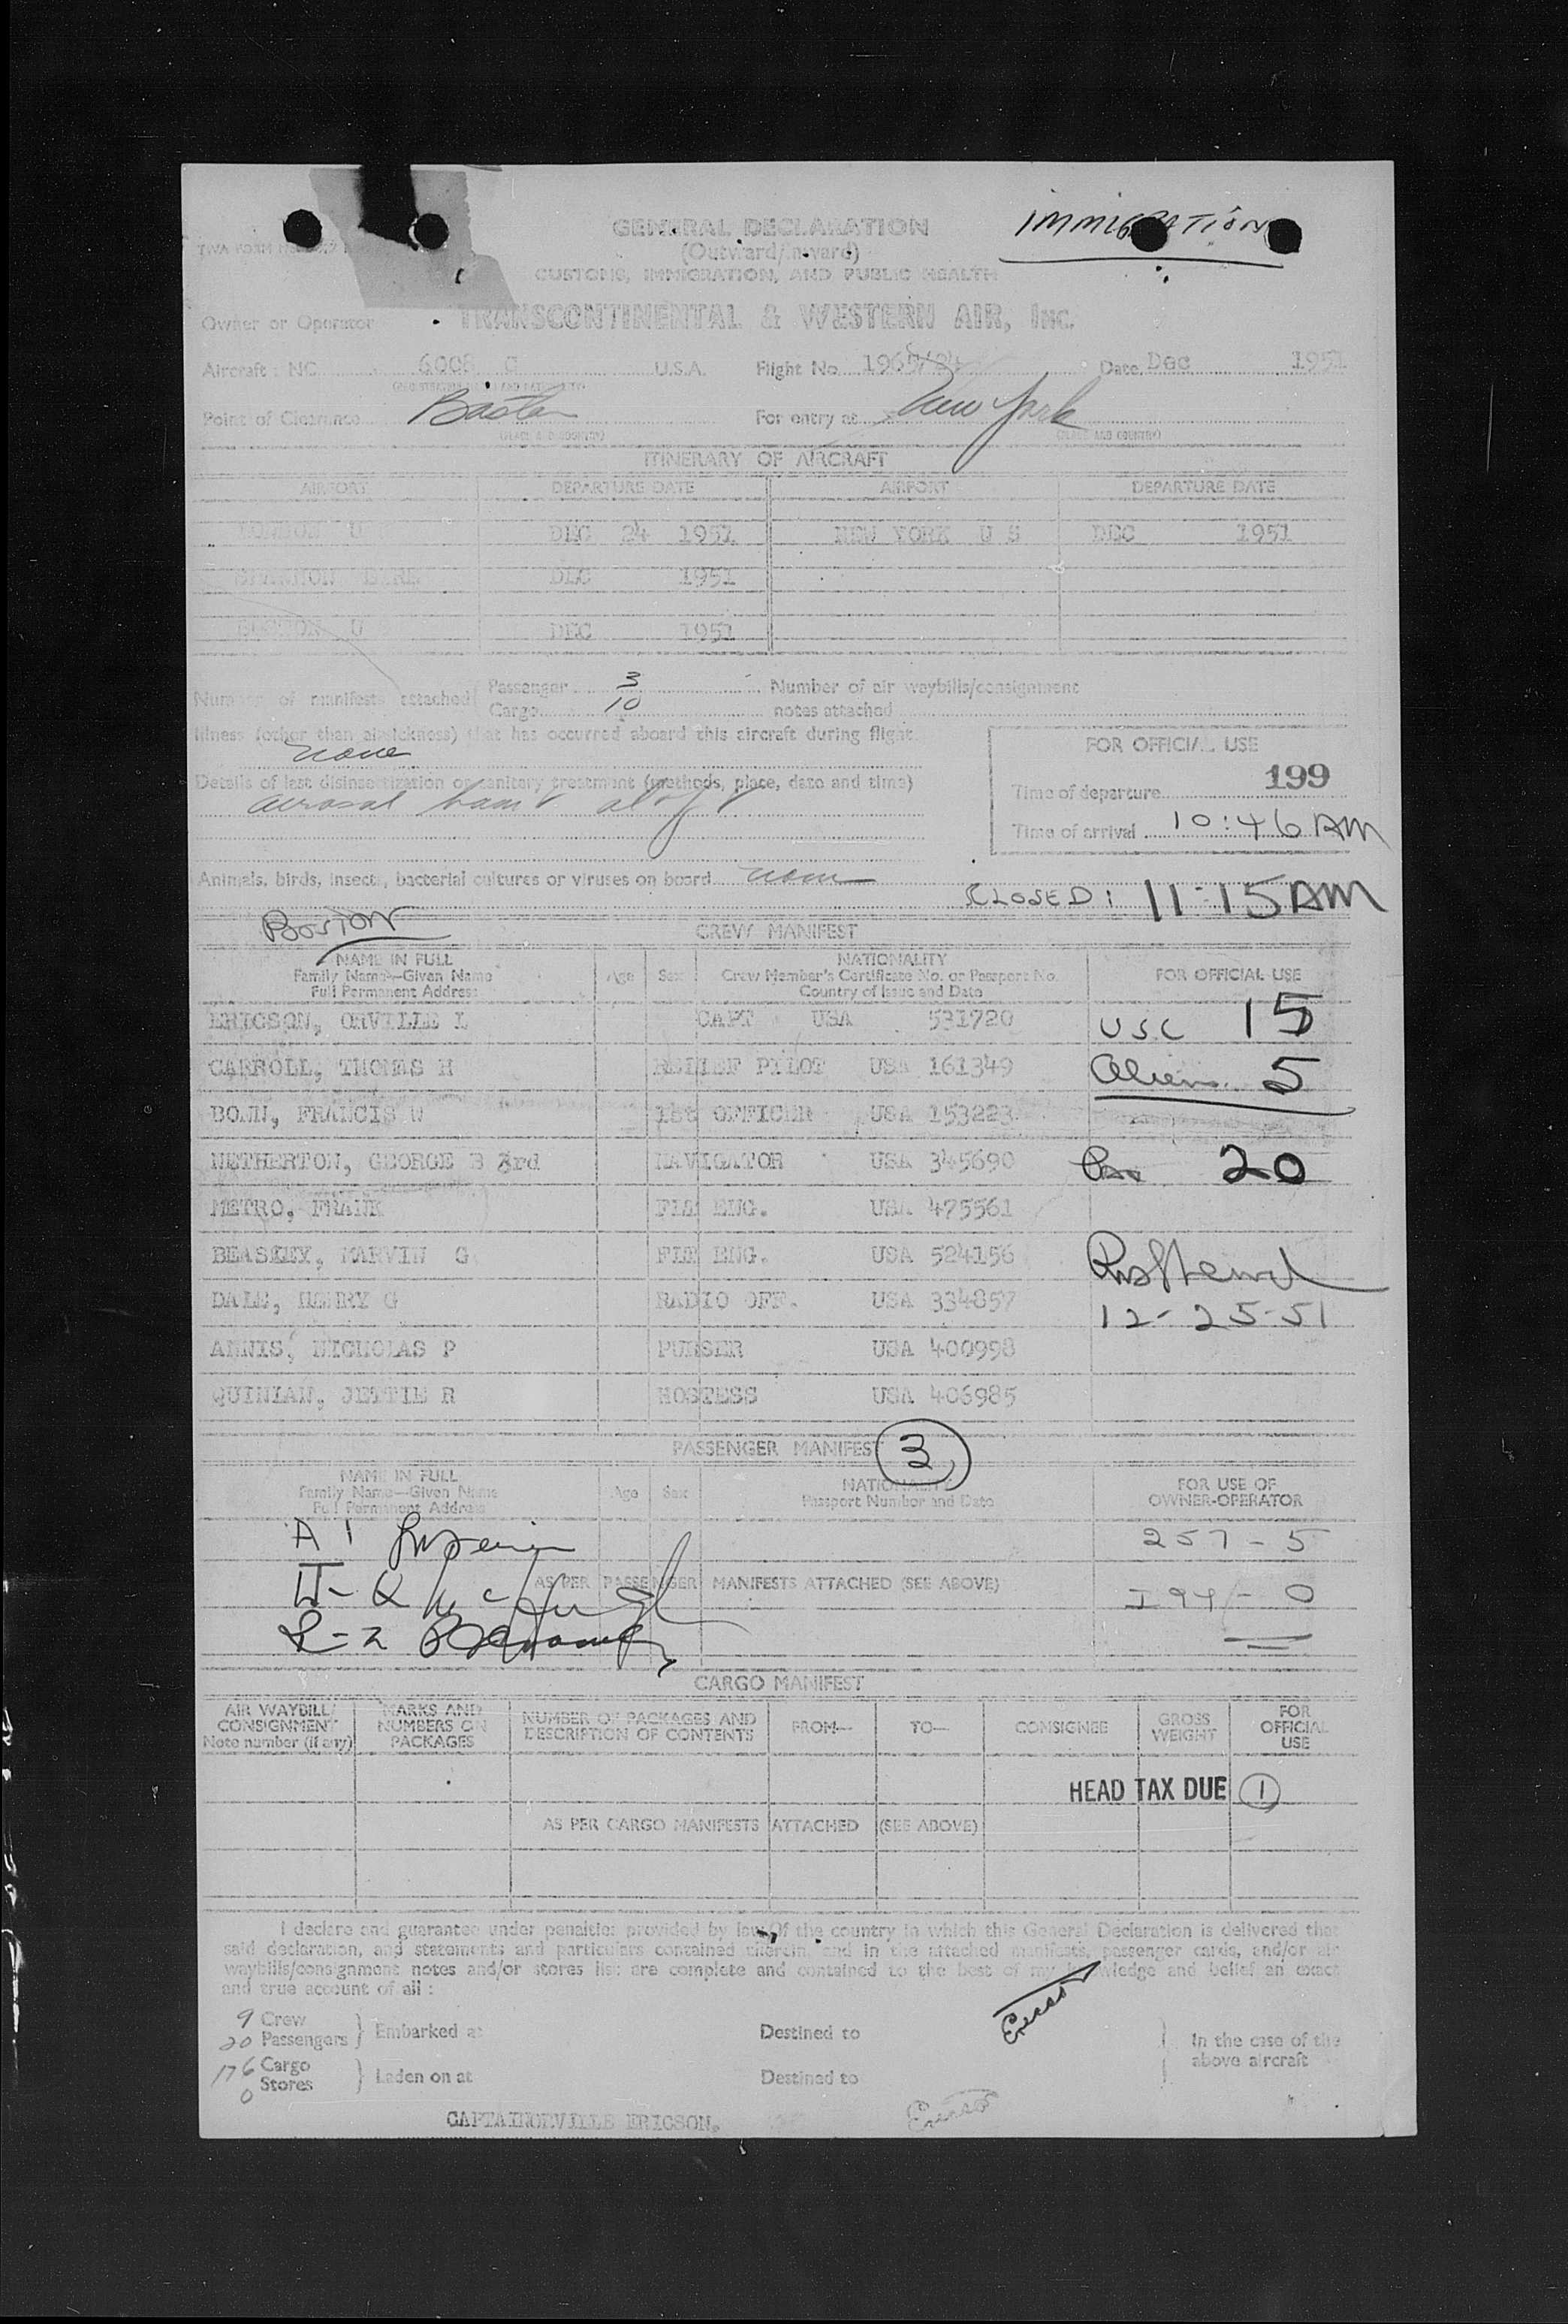 IMMIGRATION
GENERAL DECLARATION
(Outward/Inward)
TWA FORM
CUSTOMS, IMMIGRATION, AND PUBLIC HEALTH
Owner or Operator TRANSCONTINENTAL & WESTERN AIR, INC.
Aircraft: NC 6008 C U.S.A. Flight No. Date Dec 1951
Point of Clearance Boston For entry at New York
(PLACE AND COUNTRY) (PLACE AND COUNTRY)
ITINERARY OF AIRCRAFT
AIRPORT DEPARTURE DATE AIRPORT DEPARTURE DATE
LONDON DEC 24 1951 NEW YORK U S DEC 1951
SHANNON EIRE DEC 1951
BOSTON U DEC 1951
Number of manifests attached Passenger 3 Number of air waybills/consignment
Cargo 10 notes attached
Illness (other than airsickness) that has occurred aboard this aircraft during flight.
none
Details of last disinsectization or sanitary treatment (methods, place, date and time)
aerosol bomb aloft
FOR OFFICIAL USE
199
Time of departure
Time of arrival 10:46 AM
Animals, birds, insects, bacterial cultures or viruses on board none
CLOSED: 11:15 AM
BOSTON
CREW MANIFEST
NAME IN FULL
Family Name—Given Name
Full Permanent Address
Age Sex NATIONALITY
Crew Member's Certificate No. or Passport No.
Country of Issue and Date
FOR OFFICIAL USE
ERICSON, ORVILLE L CAPT USA 531720 USC 15
CARROLL, THOMAS H RELIEF PILOT USA 161349 Aliens 5
BOHN, FRANCIS W 1st OFFICER USA 153223
NETHERTON, GEORGE B 3rd NAVIGATOR USA 345690 20
METRO, FRANK FLT ENG. USA 475561
BEASLEY, MARVIN G FLT ENG. USA 524156
DALE, HENRY G RADIO OFF. USA 334857 12-25-51
ANNIS, NICHOLAS P PURSER USA 400998
QUINLAN, JETTIE R HOSTESS USA 406985
PASSENGER MANIFEST 3
NAME IN FULL
Family Name—Given Name
Full Permanent Address
Age Sex NATIONALITY
Passport Number and Date
FOR USE OF
OWNER-OPERATOR
A 1
257 - 5
II - Q
AS PER PASSENGER MANIFESTS ATTACHED (SEE ABOVE)
I 94 - 0
CARGO MANIFEST
AIR WAYBILL/
CONSIGNMENT
Note number (if any)
MARKS AND
NUMBERS ON
PACKAGES
NUMBER OF PACKAGES AND
DESCRIPTION OF CONTENTS
FROM— TO— CONSIGNEE GROSS
WEIGHT
FOR
OFFICIAL
USE
HEAD TAX DUE 1
AS PER CARGO MANIFESTS ATTACHED (SEE ABOVE)
I declare and guarantee under penalties provided by law of the country in which this General Declaration is delivered that
said declaration, and statements and particulars contained therein, and in the attached manifests, passenger cards, and/or air
waybills/consignment notes and/or stores list are complete and contained to the best of my knowledge and belief an exact
and true account of all:
9 Crew
20 Passengers } Embarked at Destined to
176 Cargo
0 Stores } Laden on at Destined to
In the case of the
above aircraft
CAPTAIN ORVILLE ERICSON,